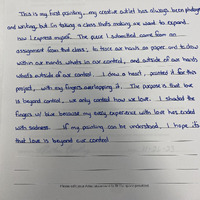 This is my first painting, my creative outlet has always been photography
and writing, but I'm taking a class that's making me want to expand
how I express myself. The piece I submitted came from an
assignment from that class, to trace our hands on paper and to draw
within our hands whats in our control, and outside of our hands
whats outside of our control. I drew a heart, painted it for this
project, with my fingers overlapping it. The purpose is that love
is beyond control, we only control how we love. I shaded the
fingers w/ blue because my every experience with love has ended
with sadness. If my painting can be understood, I hope its
that love is beyond our control